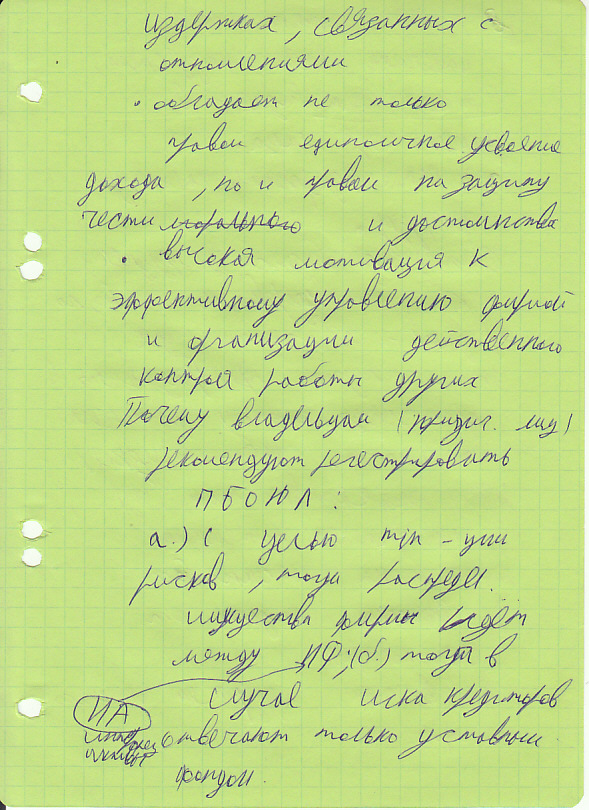 издержках, связанных с
отношениями
• обладает не только
правом единоличное усвоение
дохода, но и правом на защиту
чести морального и достоинства
• высокая мотивация к
эффективному управлению фирмой
и организации действенного
контрол работы других
Почему владельцам (юридич. лиц)
рекомендуют регестрировать
ПБОЮЛ:
а.) С целью min-ции
рисков, тогда распредел.
имущества фирмы идёт
между ; (б.) тогда в
случае иска кредиторов
ИА
отвечают только уставным
фондом.